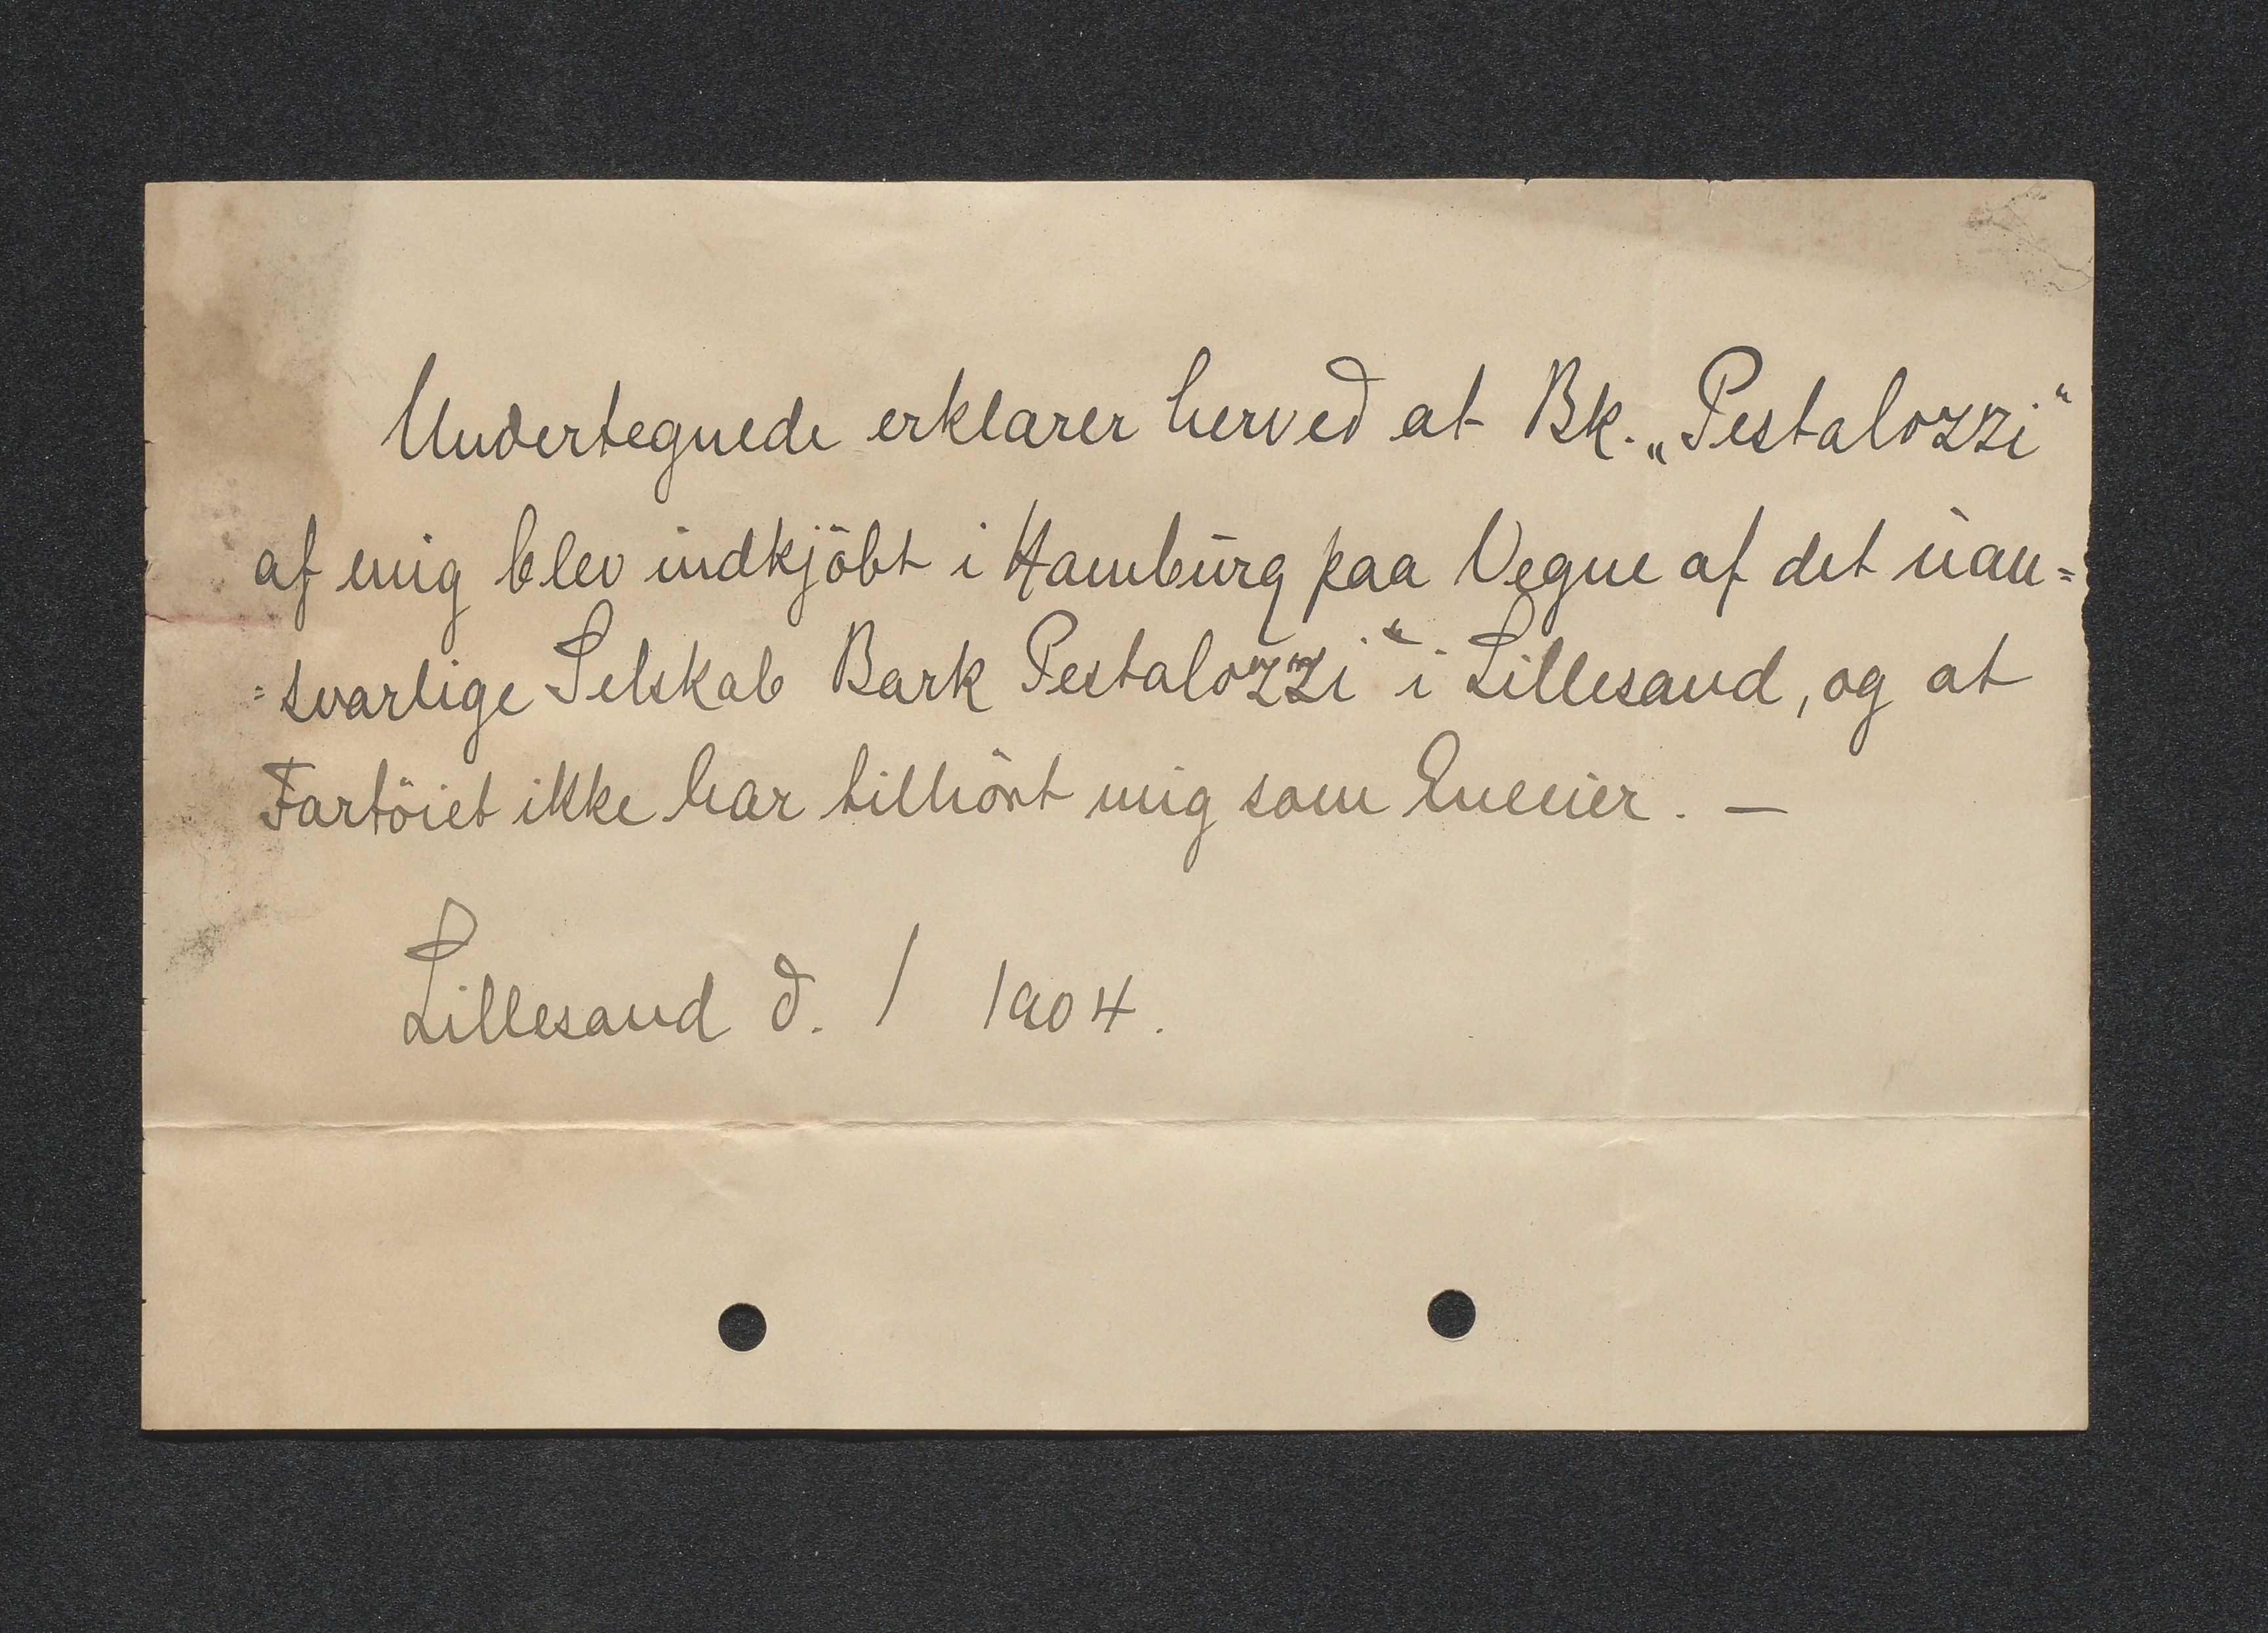 Undertegnede erklarer herved at Bk. „Pestalozzi“
af mig blev indkjöbt i Hamburg paa Vegne af det uan=
=svarlige Selskab Bark Pestalozzi“ i Lillesand, og at
Fartöiet ikke har tilhört mig som Eneeier. —
Lillesand d. / 1904.